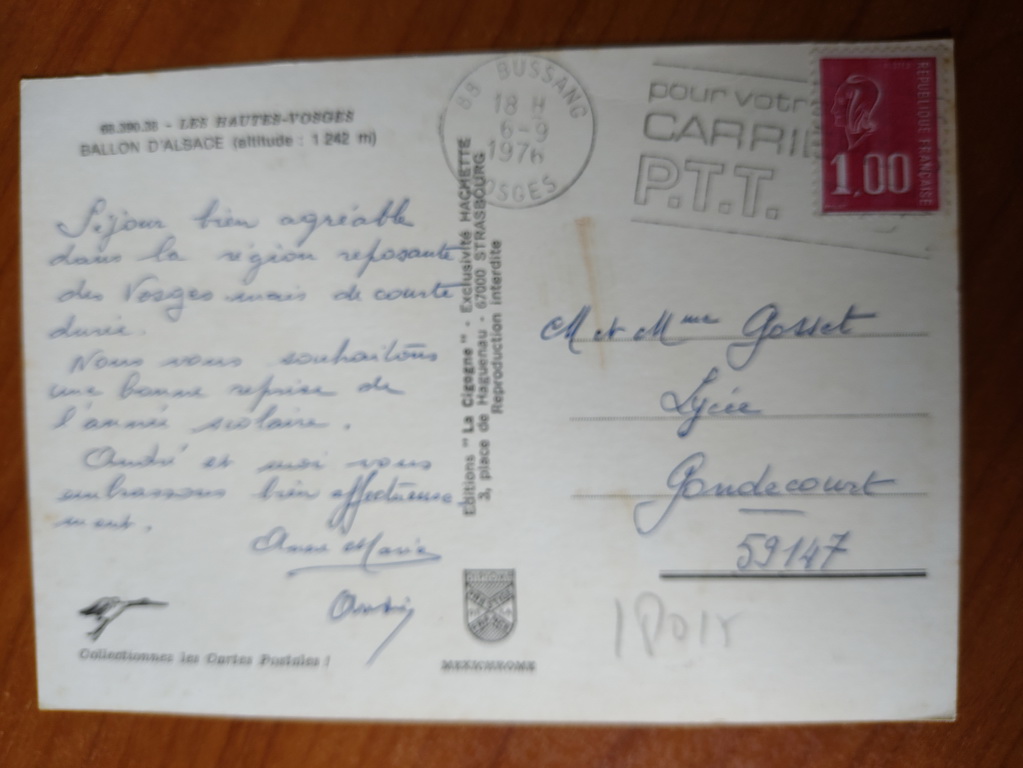 68.390.38 - LES HAUTES-VOSGES
BALLON D'ALSACE (altitude : 1 242 m)
Séjour bien agréable
dans la région reposante
des Vosges mais de courte
durée.
Nous vous souhaitons
une bonne reprise de
l'année scolaire.
André et moi vous
embrassons bien affectueuse-
ment.
Anne Marie
André
Collectionnez les Cartes Postales !
Editions "La Cigogne" - Exclusivité HACHETTE
3, place de Haguenau - 67000 STRASBOURG
Reproduction interdite
MEXICHROME
88 BUSSANG
18 H
6-9
1976
VOSGES
pour votr
CARRIE
P.T.T.
REPUBLIQUE FRANÇAISE
1,00
M et Mme Gosset
Lycée
Gondecourt
59147